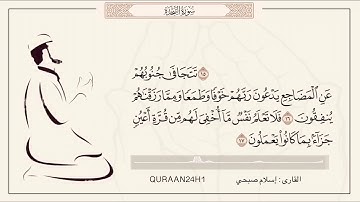 سورة السجدة
﴿١٥﴾ تَتَجَافَىٰ جُنُوبُهُمْ
عَنِ الْمَضَاجِعِ يَدْعُونَ رَبَّهُمْ خَوْفًا وَطَمَعًا وَمِمَّا رَزَقْنَاهُمْ
يُنفِقُونَ ﴿١٦﴾ فَلَا تَعْلَمُ نَفْسٌ مَّا أُخْفِيَ لَهُم مِّن قُرَّةِ أَعْيُنٍ
جَزَاءً بِمَا كَانُوا يَعْمَلُونَ ﴿١٧﴾
القارئ : إسلام صبحي
QURAAN24H1